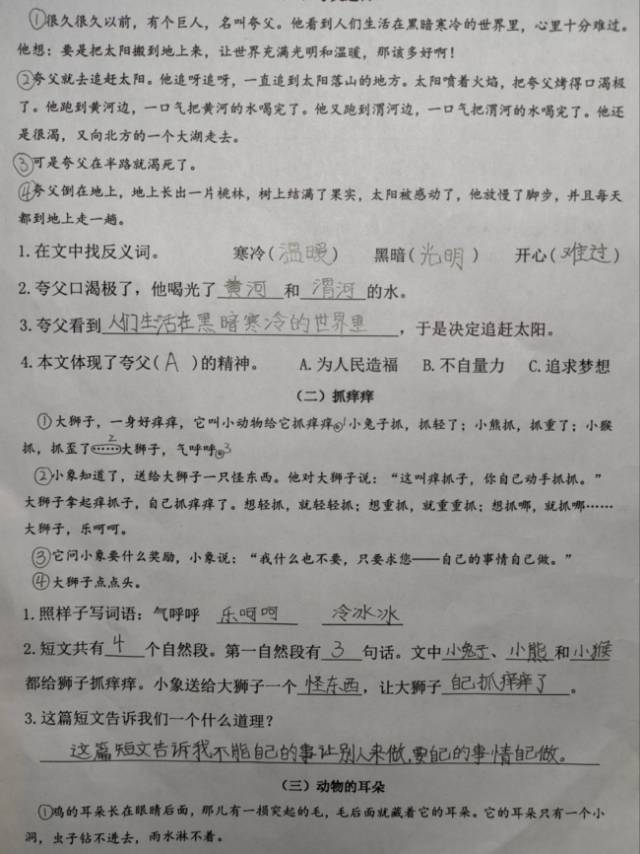 ①很久很久以前，有个巨人，名叫夸父。他看到人们生活在黑暗寒冷的世界里，心里十分难过。
他想：要是把太阳搬到地上来，让世界充满光明和温暖，那该多好啊！
②夸父就去追赶太阳。他追呀追呀，一直追到太阳落山的地方。太阳喷着火焰，把夸父烤得口渴极
了。他跑到黄河边，一口气把黄河的水喝完了。他又跑到渭河边，一口气把渭河的水喝完了。他还
是很渴，又向北方的一个大湖走去。
③可是夸父在半路就渴死了。
④夸父倒在地上，地上长出一片桃林，树上结满了果实，太阳被感动了，他放慢了脚步，并且每天
都到地上走一趟。
1.在文中找反义词。 寒冷(温暖) 黑暗(光明) 开心(难过)
2.夸父口渴极了，他喝光了黄河和渭河的水。
3.夸父看到人们生活在黑暗寒冷的世界里，于是决定追赶太阳。
4.本文体现了夸父(A)的精神。 A.为人民造福 B.不自量力 C.追求梦想
（二）抓痒痒
①大狮子，一身好痒痒，它叫小动物给它抓痒痒。1小兔子抓，抓轻了；小熊抓，抓重了；小猴
抓，抓歪了……2大狮子，气呼呼。3
②小象知道了，送给大狮子一只怪东西。他对大狮子说：“这叫痒抓子，你自己动手抓抓。”
大狮子拿起痒抓子，自己抓痒痒了。想轻抓，就轻轻抓；想重抓，就重重抓；想抓哪，就抓哪……
大狮子，乐呵呵。
③它问小象要什么奖励，小象说：“我什么也不要，只要求您——自己的事情自己做。”
④大狮子点点头。
1.照样子写词语：气呼呼 乐呵呵 冷冰冰
2.短文共有4个自然段。第一自然段有3句话。文中小兔子、小熊和小猴
都给狮子抓痒痒。小象送给大狮子一个怪东西，让大狮子自己抓痒痒了。
3.这篇短文告诉我们一个什么道理？
这篇短文告诉我不能自己的事让别人来做,要自己的事情自己做。
（三）动物的耳朵
①鸡的耳朵长在眼睛后面，那儿有一撮突起的毛，毛后面就藏着它的耳朵。它的耳朵只有一个小
洞，虫子钻不进去，雨水淋不着。